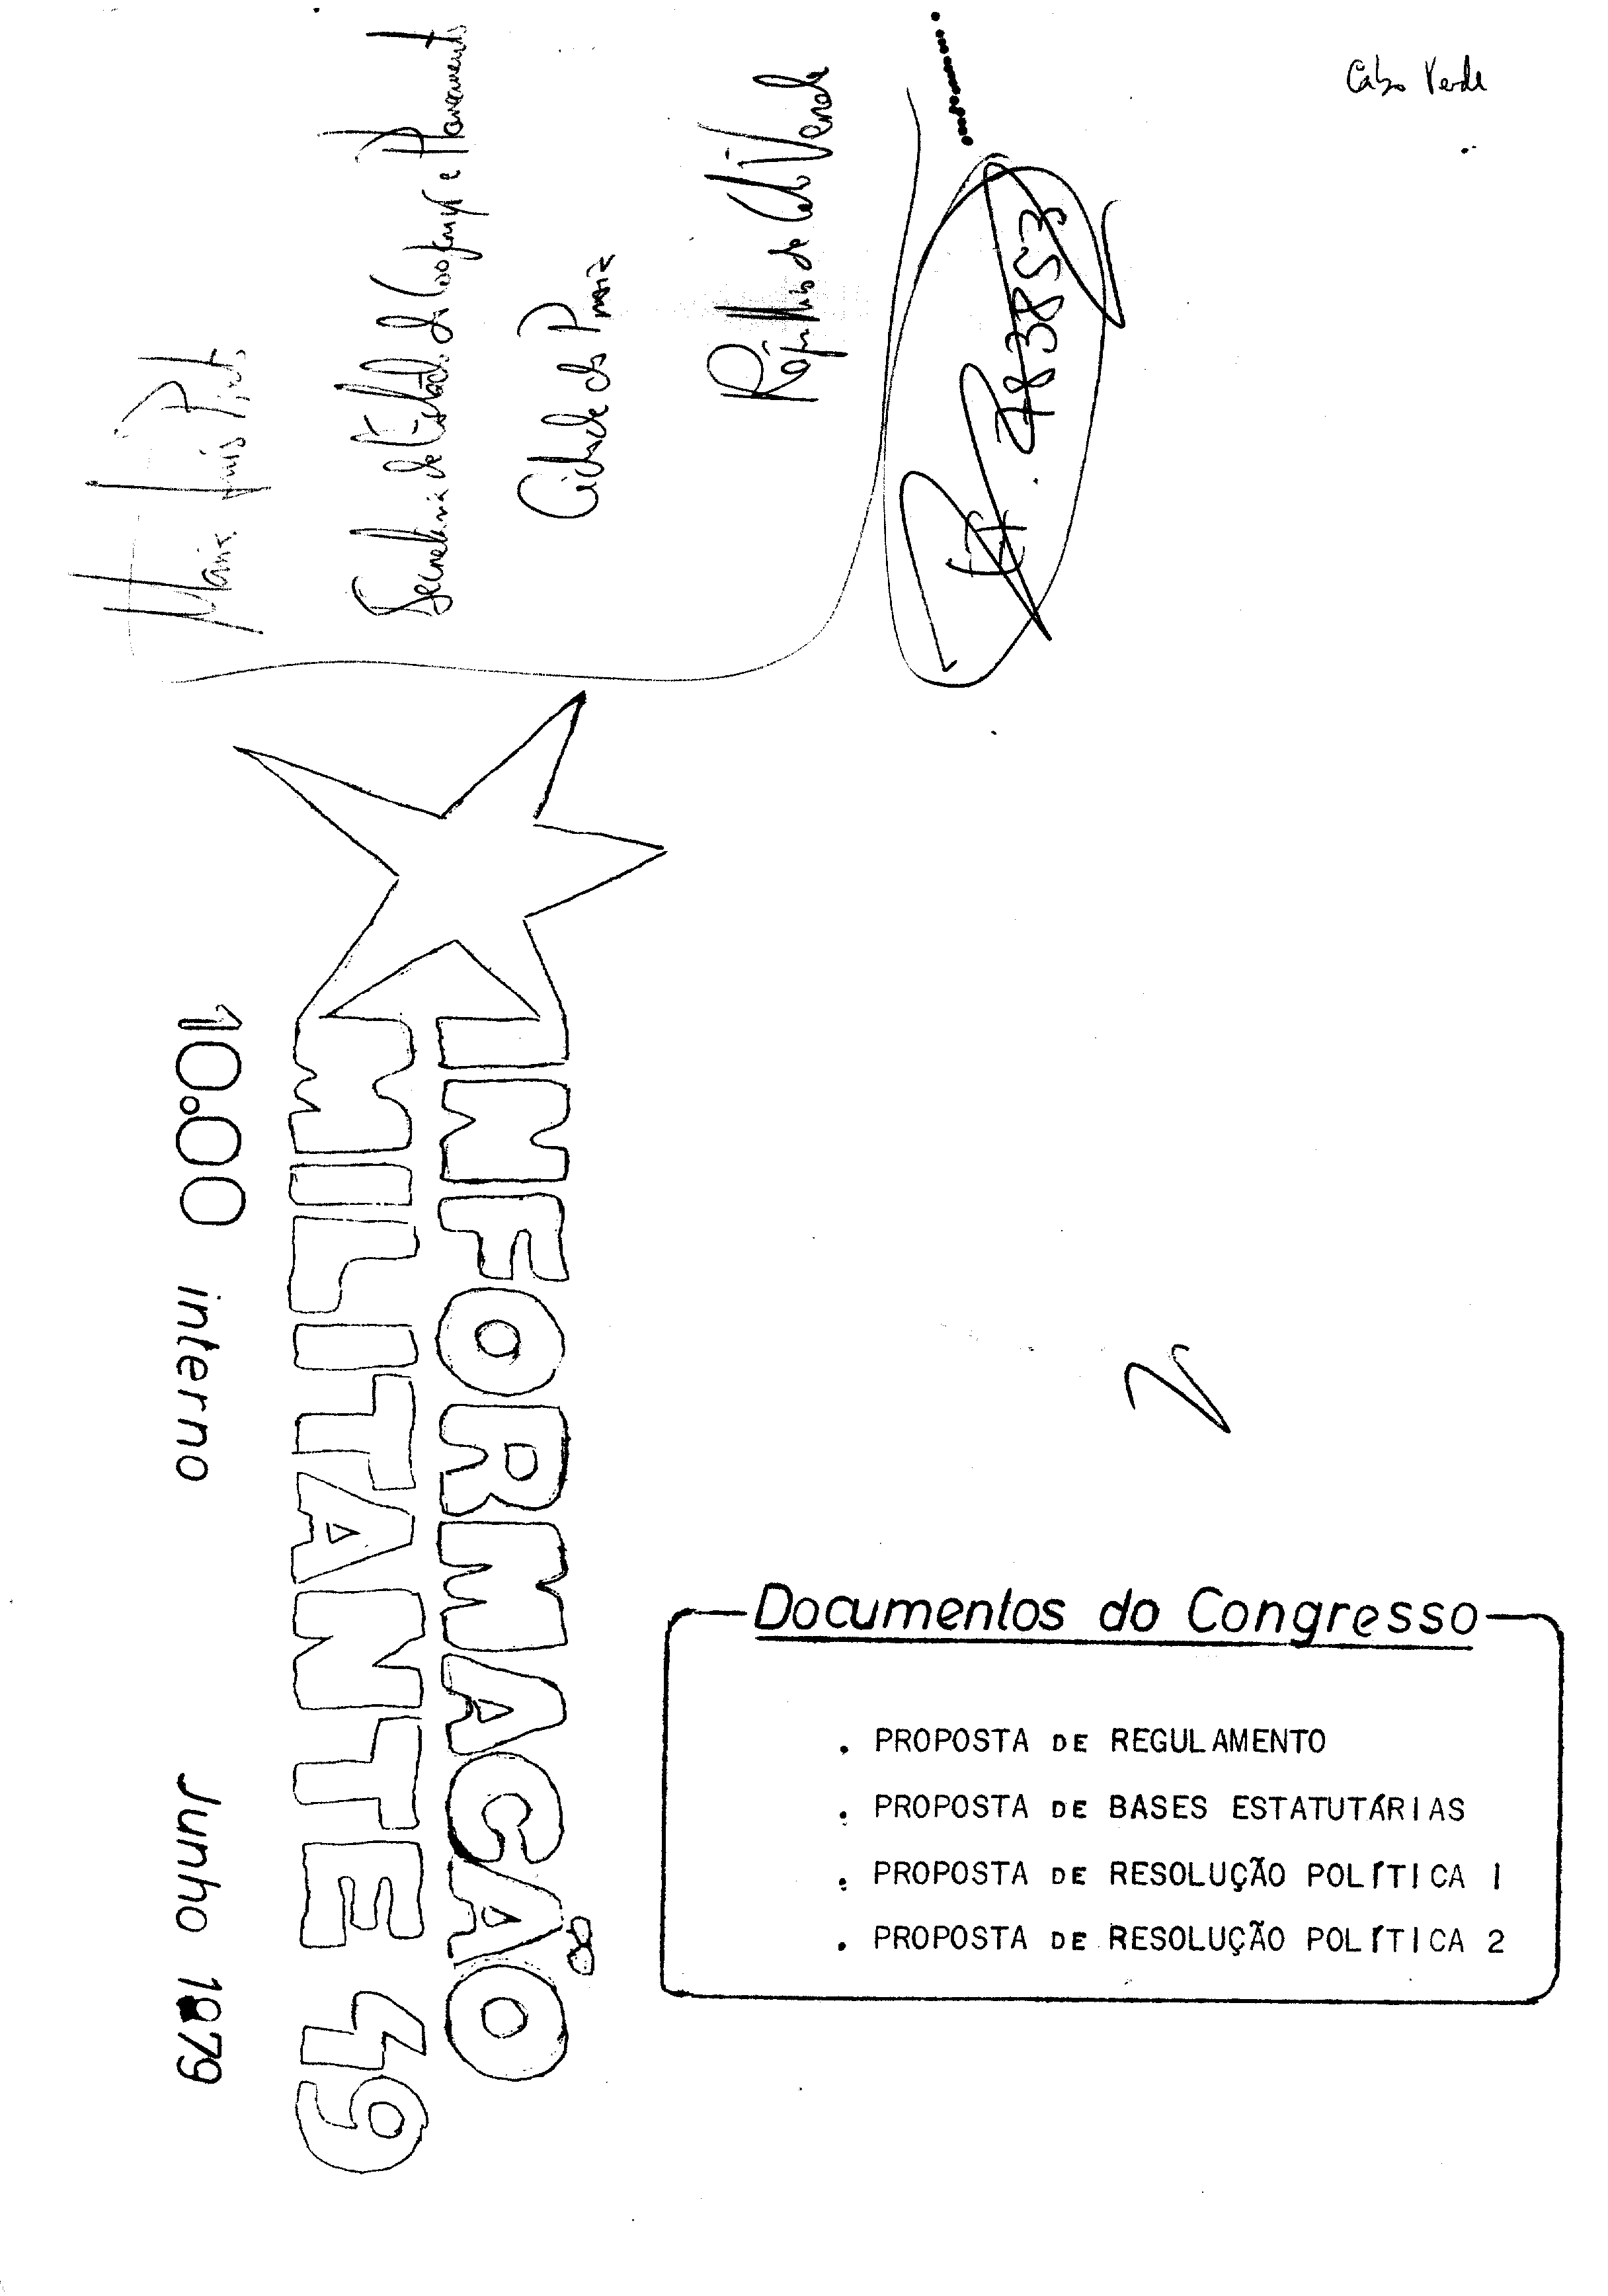 Cabo Verde
Maria Luís Pinto
Secretaria de Estado da Cooperação e Planeamento
Cidade da Praia
República de Cabo Verde
783853
INFORMAÇÃO
MILITANTE 49
10.00 interno Junho 1979
Documentos do Congresso
. PROPOSTA DE REGULAMENTO
. PROPOSTA DE BASES ESTATUTÁRIAS
. PROPOSTA DE RESOLUÇÃO POLÍTICA 1
. PROPOSTA DE RESOLUÇÃO POLÍTICA 2